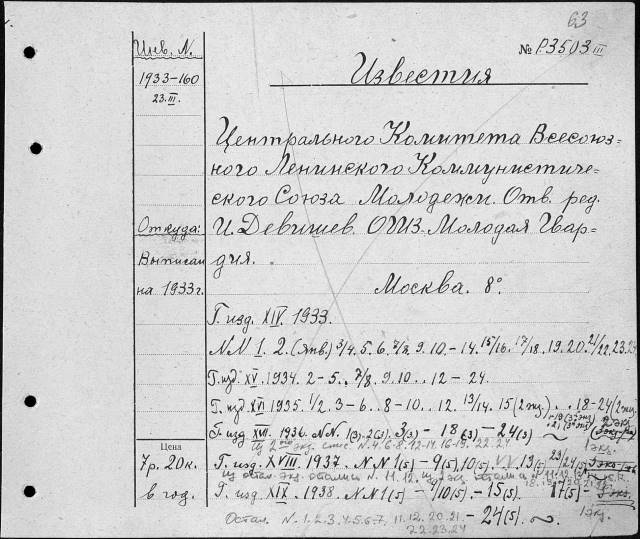 63
Инв. N.
№ P3503 III
1933-160
23.III.
Известия
Центрального Комитета Всесоюз=
ного Ленинского Коммунистиче-
ского Союза Молодежи. Отв. ред.
Откуда:
И. Девишев. ОГИЗ. Молодая Гвар-
Выписан
дия.
на 1933 г.
Москва. 8°.
Г. изд. XIV. 1933.
NN 1. 2. (Янв.) 3/4. 5. 6. 7/8. 9. 10. - 14. 15/16. 17/18. 19. 20. 21/22. 23. 24
Г. изд. XV. 1934. 2 - 5.. 7/8. 9. 10. .. 12 - 24
Г. изд. XVI 1935. 1/2. 3 - 6.. 8 - 10.. 12. 13/14. 15 (2 экз.) .. 18 - 24 (2 экз.
Г. изд XVII. 1936. NN. 1(3)-2(3). 3(3) - 18(3) - 24(3)
2 экз.
Цена
1 экз.
7р. 20к.
Г. изд. XVIII. 1937. NN 1(5) - 9(5), 10(5). 13(5) 23/24(5)
в год.
Г. изд. XIX. 1938. NN 1(5) - 9/10(5). - 15(5). 17(5) -
1 экз.
Остал. N. 1. 2. 3. 4. 5. 6. 7. 11. 12. 20. 21. - 24(5).
22. 23. 24